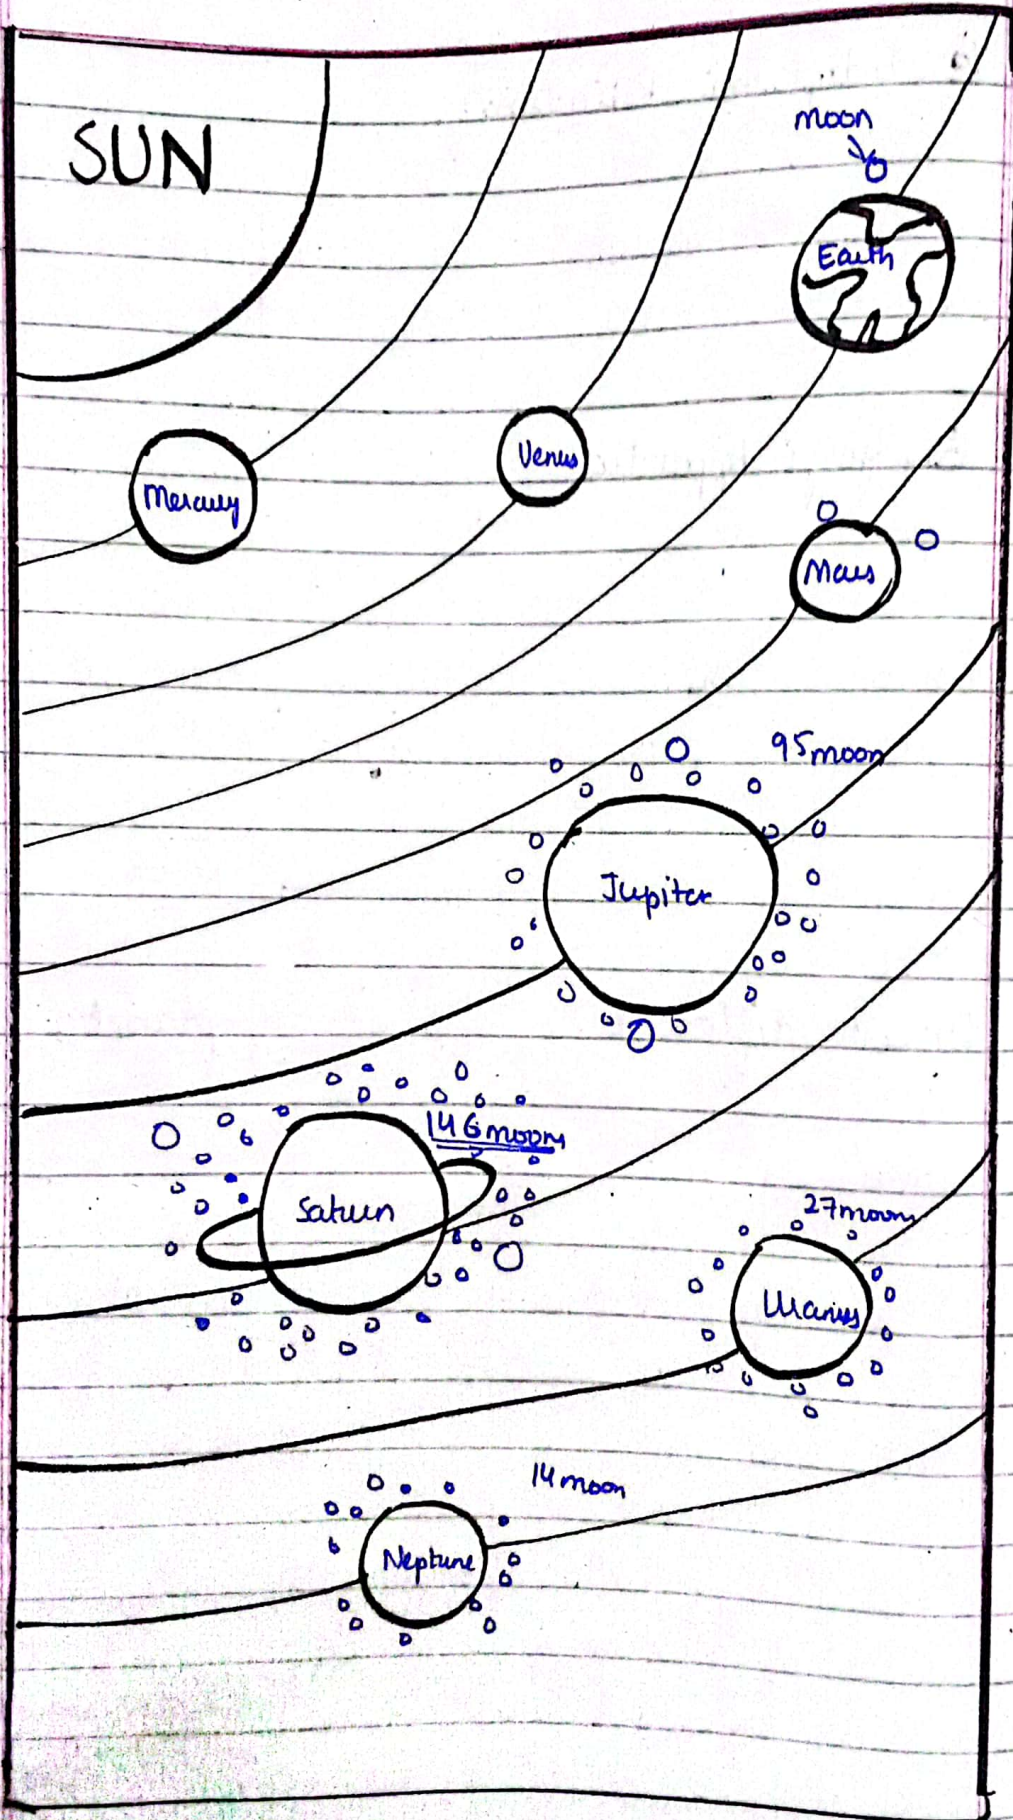 SUN
moon
Earth
Mercury
Venus
Mars
95 moon
Jupiter
146 moon
Saturn
27 moon
Uranus
14 moon
Neptune